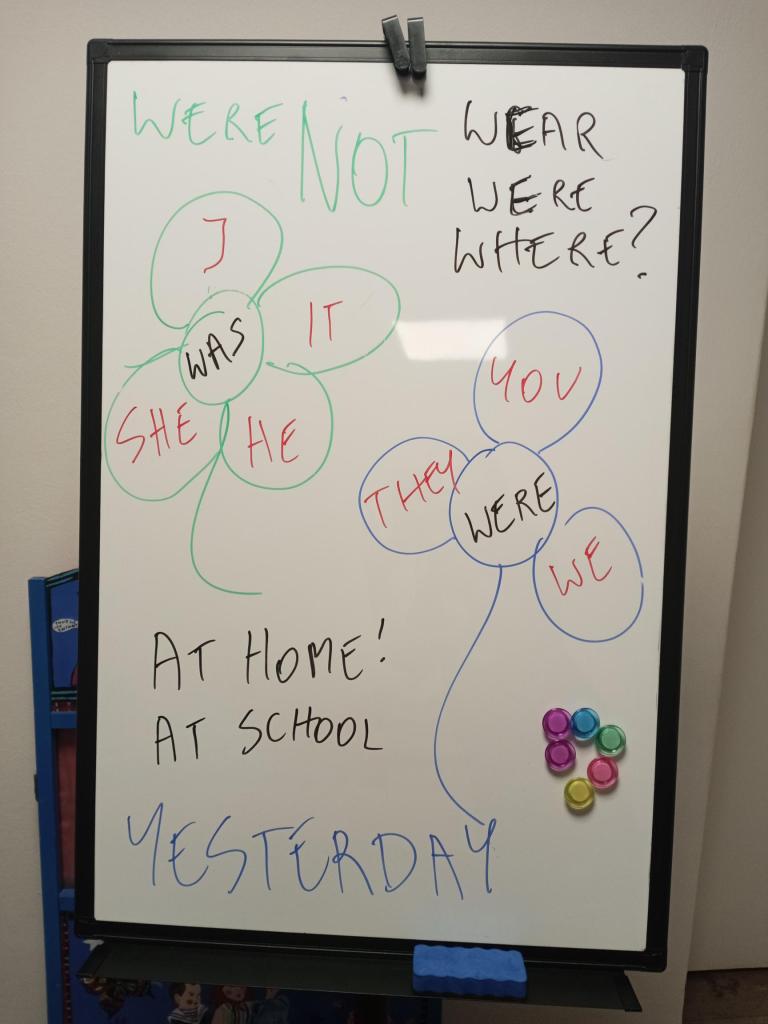 WERE NOT
WEAR
WERE
WHERE?
I
IT
WAS
SHE
HE
YOU
THEY
WERE
WE
AT HOME!
AT SCHOOL
YESTERDAY